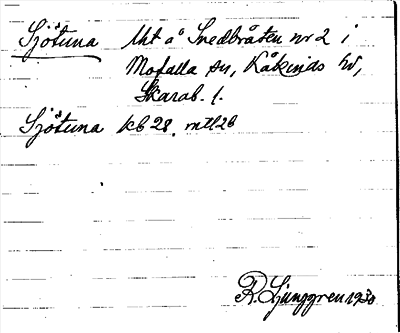 Sjötuna Uht å Snedbråten nr 2 i
Mofalla sn, Kåkinds hd,
Skarab. l.
Sjötuna kb 28. mtl 28
R. Ljunggren 1930